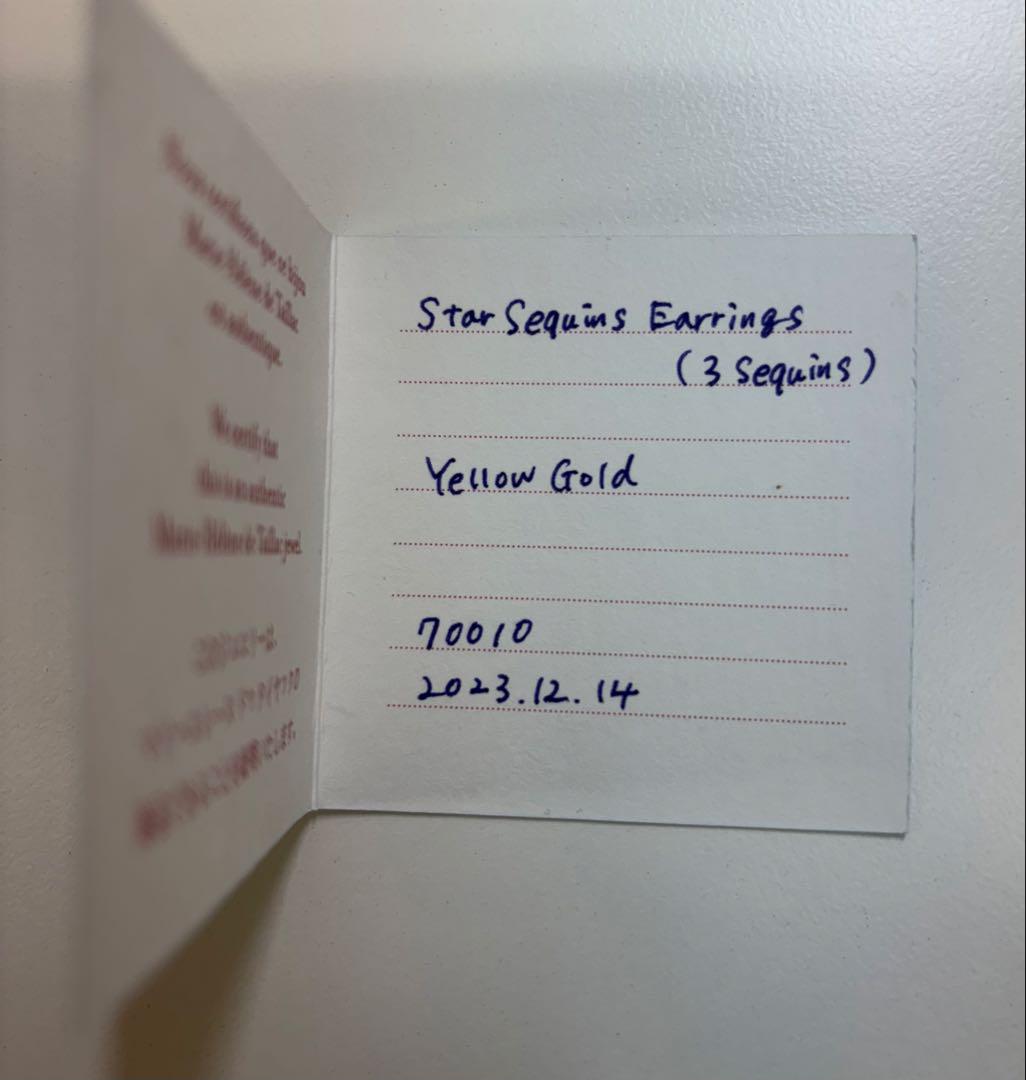 que ce bijou
Marie-Hélène de Taillac
est authentique.
We certify that
this is an authentic
Marie-Hélène de Taillac jewel.
Star Sequins Earrings
(3 Sequins)
Yellow Gold
70010
2023.12.14